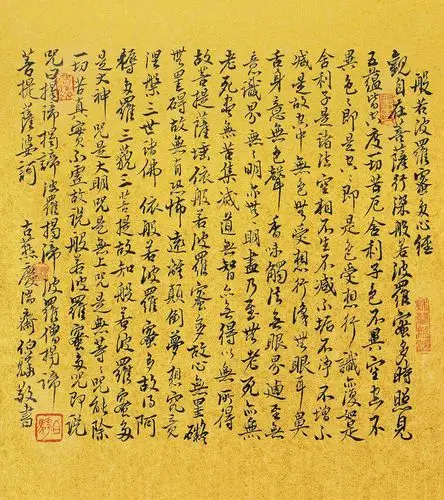 般若波羅蜜多心經
觀自在菩薩行深般若波羅蜜多時照見
五蘊皆空度一切苦厄舍利子色不異空々不
異色々即是空々即是色受想行識亦復如是
舍利子是諸法空相不生不滅不垢不淨不增不
減是故空中無色無受想行識無眼耳鼻
舌身意無色聲香味觸法無眼界乃至無
意識界無々明亦無々明盡乃至無老死亦無
老死盡無苦集滅道無智亦無得以無所得
故菩提薩埵依般若波羅蜜多故心無罣礙
無罣礙故無有恐怖遠離顛倒夢想究竟
涅槃三世諸佛依般若波羅蜜多故得阿
耨多羅三藐三菩提故知般若波羅蜜多
是大神咒是大明咒是無上咒是無等々咒能除
一切苦真實不虛故說般若波羅蜜多咒即說
咒曰揭諦揭諦波羅揭諦波羅僧揭諦
菩提薩婆訶 古燕 齋 敬書